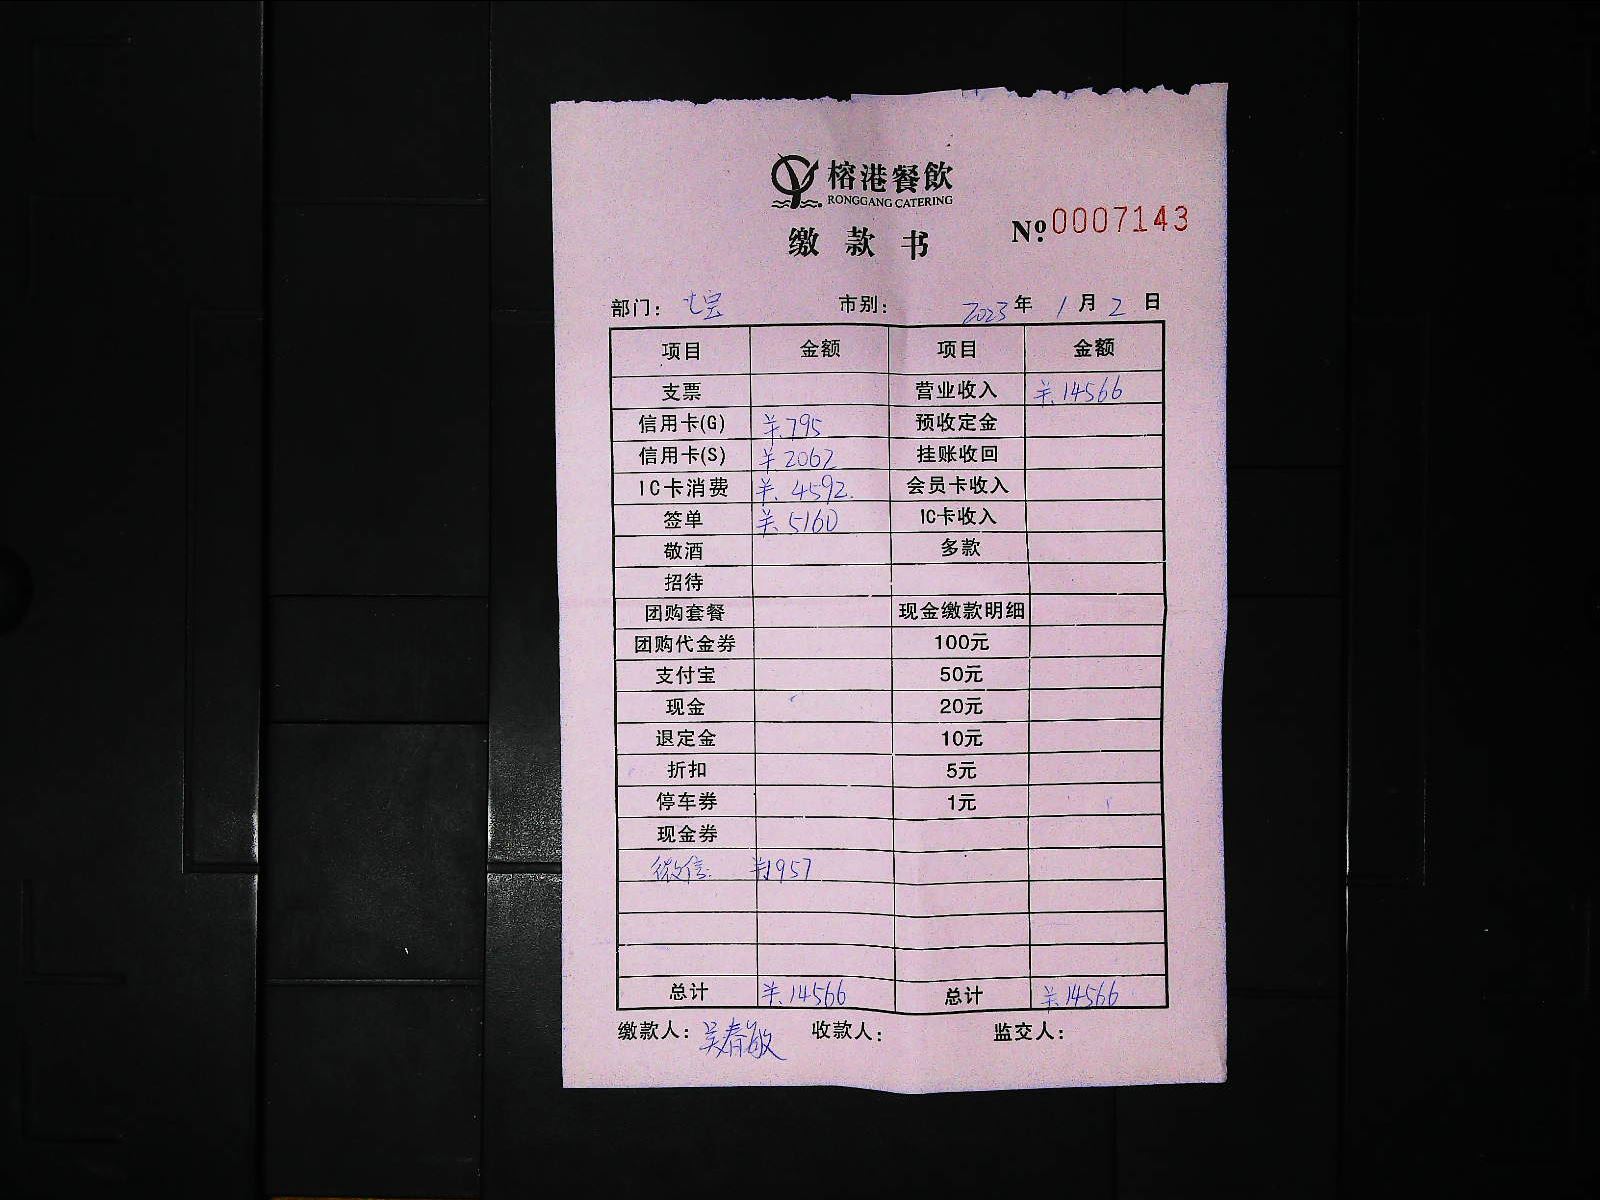 榕港餐飲
RONGGANG CATERING
缴款书
№ 0007143
部门： 七宝 市别： 2023年1月2日
项目 金额 项目 金额
支票 营业收入 ¥14566
信用卡(G) ¥795 预收定金
信用卡(S) ¥2062 挂账收回
IC卡消费 ¥4592. 会员卡收入
签单 ¥5160 IC卡收入
敬酒 多款
招待
团购套餐 现金缴款明细
团购代金券 100元
支付宝 50元
现金 20元
退定金 10元
折扣 5元
停车券 1元
现金券
微信 ¥1957
总计 ¥14566 总计 ¥14566
缴款人：吴春敏 收款人： 监交人：